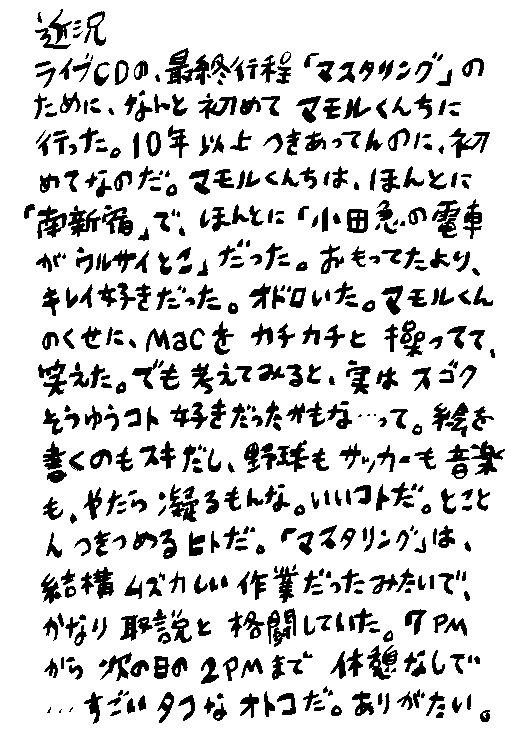 近況
ライブCDの、最終行程「マスタリング」の
ために、なんと 初めて マモルくんちに
行った。10年以上 つきあってんのに、初
めてなのだ。マモルくんちは、ほんとに
「南新宿」で、ほんとに「小田急の電車
が ウルサイとこ」だった。おもってたより、
キレイ好きだった。オドロいた。マモルくん
のくせに、Macを カチカチと 操ってて、
笑えた。でも 考えてみると、実は スゴク
そうゆうコト 好きだったかもな…って。絵を
書くのもスキだし、野球も サッカーも 音楽
も、やたら 凝るもんな。いいコトだ。とこと
ん つきつめるヒトだ。「マスタリング」は、
結構 ムズカしい 作業だったみたいで、
かなり 取説と 格闘していた。7PM
から 次の日の 2PMまで 休憩なしで
…すごい タフな オトコだ。ありがたい。